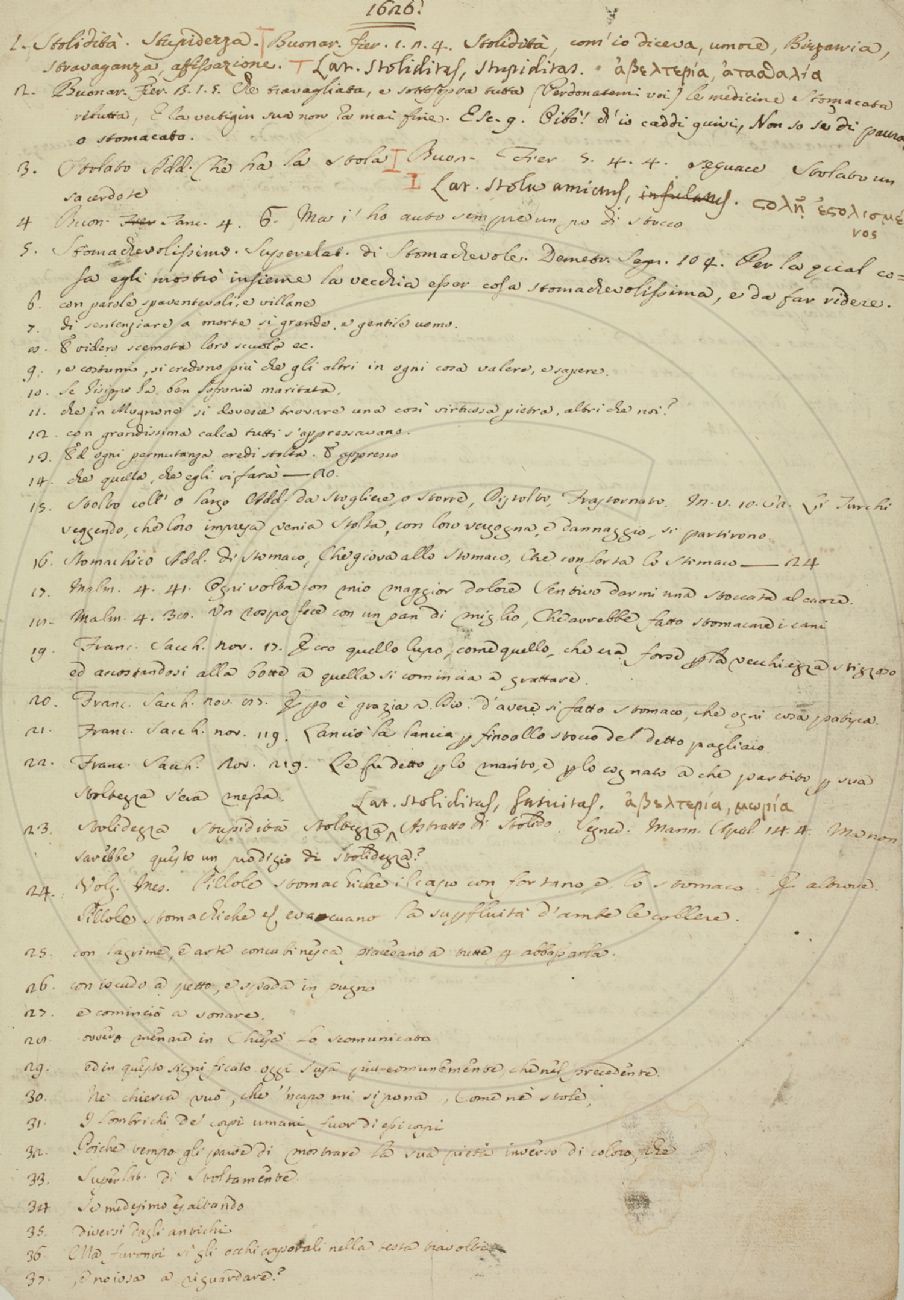 1626.
1. Stolidità. Stupidezza. Buonar. Fier. 1. 2. 4. Stolidità, com' io diceva, umore, Bizzarria,
stravaganza, affissazione. Lat. stoliditas, stupiditas. ἀβελτερία, ἀτασθαλία
2. Buonar. Fier. 3. 1. 5. travagliata, e sottosopra tutta (Perdonatemi voi) le medicine Stomacata
rifiuta, E la vertigin sua non ha mai fine. E sc. 9. Oibò! ch' io caddi quivi, Non so se di paura
o stomacato.
3. Stolato Add. Che ha la stola Buon. Fier 5. 4. 4. seguace Stolato un
sacerdote Lat. stola amictus, infulatus. στολῇ ἐστολισμέ
νος
4 Buon. Fier Tanc. 4. 6. Ma i' ho auto sempre un po di stocco
5. Stomachevolissimo. Superelat. di Stomachevole. Demetr. Segn. 104. Per la qual co=
sa egli mostrò insieme la vecchia esser cosa stomachevolissima, e da far ridere.
6 con parole spaventevoli, e villane
7. di sentenziare a morte si grande, e gentile uomo.
8. E videro scemata loro scuola ec.
9. , e costumi, si credono più che gli altri in ogni cosa valere, e sapere.
10. se Gisippo ha ben Sofronia maritata.
11. che in Mugnone si dovesse trovare una così virtuosa pietra, altri che noi?
12. con grandissima calca tutti s'appressavano.
13. Ed ogni permutanza credi stolta. E appresso
14. che quella, che egli vi farà — 20.
15. Stolto coll' o largo Add. da Stogliere, o storre, Distolto, Frastornato. M. V. 10. Li Turchi
veggendo, che loro impresa venia stolta, con loro vergogna, e dannaggio, si partirono
16. Stomachico Add. di Stomaco, Che giova allo stomaco, Che conforta lo stomaco — 24
17. Malm. 4. 41. Ogni volta con mio maggior dolore Sentivo darmi una stoccata al cuore.
18. Malm. 4. 30. Un rospo fece con un pan di miglio, Che avrebbe fatto stomacare i cani
19. Franc. Sacch. nov. 17. quello lupo, come quello, che era forse p la vecchiezza stizzoso
ed accostandosi alla botte a quella si comincia a grattare.
20. Franc. Sacch. nov. è grazia a Dio d'avere si fatto stomaco, che ogni cosa patisca
21. Franc. Sacch. nov. 119. Lanciò la lancia p fino allo stocco del detto pagliaio
22. Franc. Sacch. Nov. 219. Le fu detto p lo marito, e p lo cognato a che partito p sua
stoltezza s'era messa. Lat. stoliditas, fatuitas. ἀβελτερία, μωρία
23. Stolidezza Stupidità Stoltezza, Astratto di Stolido. Segner. Mann. 14. 4. Ma non
sarebbe questo un prodigio di stolidezza?
24. Volg. Mes. Pillole stomachiche il capo confortano, e lo stomaco. E altrove.
Pillole stomachiche evacuano la supfluità d'ambe le collere.
25. con lagrime, e arte concubinesca, piacevano a tutte
26. con iscudo a petto, e spada in pugno
27. e cominciò a sonare.
28. ovvero menare in Chiesa lo scomunicato
29. ed in questo significato oggi s'usa più comunemente, che nel precedente.
30. Ne chierca vuò, che 'n capo mi si pona, Come nè stole,
31. I Lombrichi de' corpi umani fuor di
32. Poiche tempo gli parve di mostrare la sua pietà inverso di coloro, che
33. Superlat. di Stoltamente
34 Se medesimo esaltando
35. diversi dagli antichi
36. Ma furonvi si gli occhi corporali nella testa travolti
37. , e noiosa a riguardare?